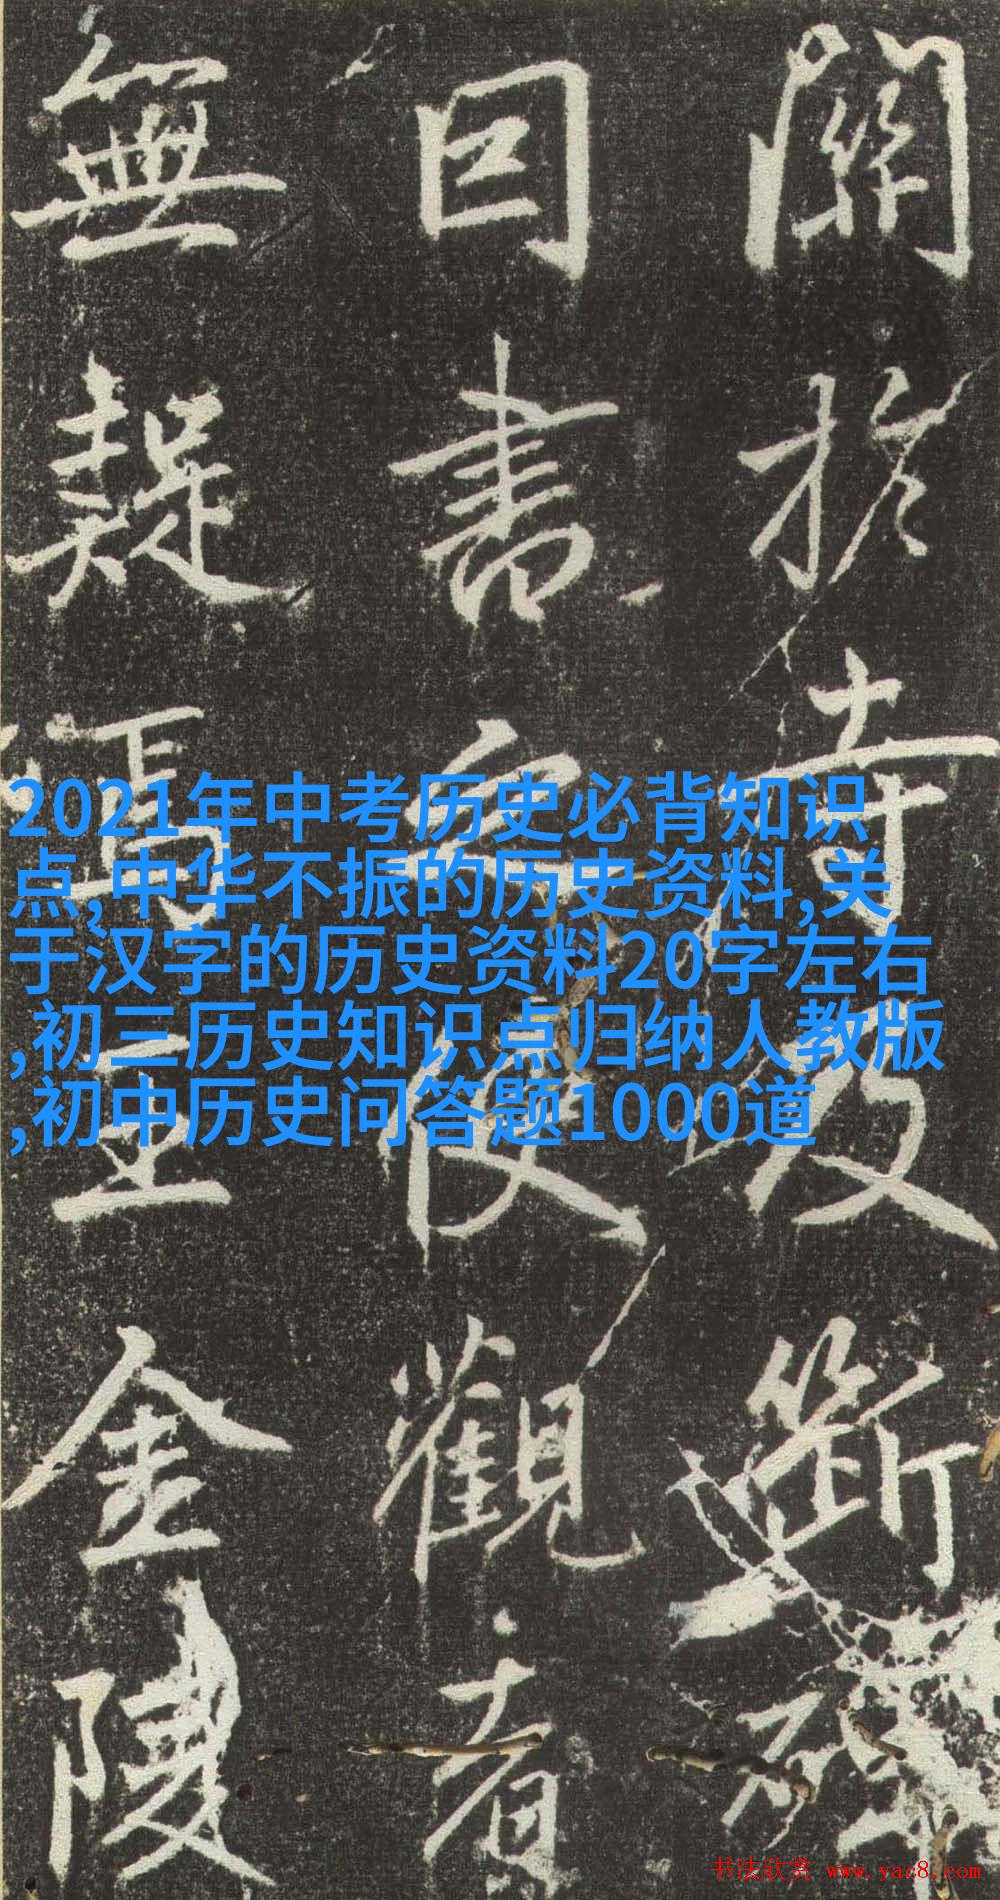 關於寺及斷碑
曰書字使觀者
無疑焉正金陵
2021年中考历史必背知识
点,中华不振的历史资料,关
于汉字的历史资料20字左右
,初三历史知识点归纳人教版
,初中历史问答题1000道
书法欣赏 www.yac8.com